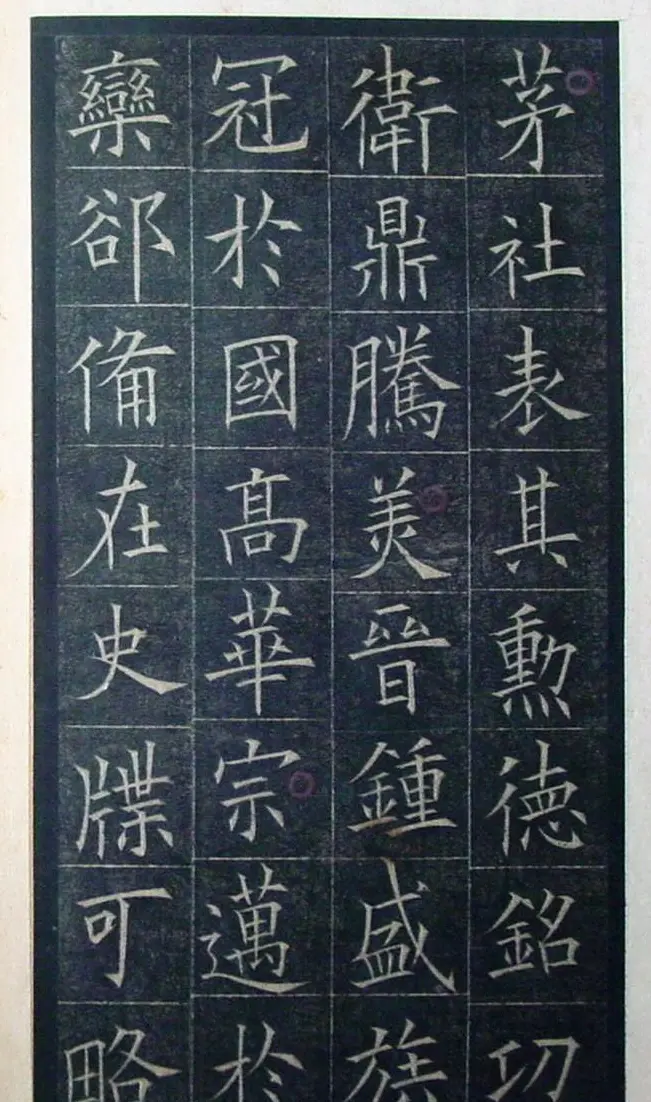 茅社表其勲德銘功
衛鼎騰美晉鍾盛族
冠於國髙華宗邁於
欒郤俻在史牒可略